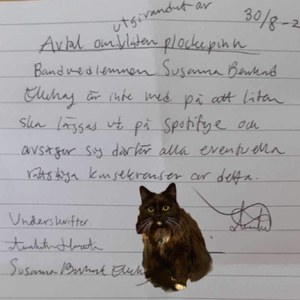 utgivandet av
30/8-2
Avtal om låten plockepinn
Bandmedlemmen Susanna
är inte med på att låten
ska läggas ut på Spotifye och
avsäger sig därför alla eventuella
rättsliga konsekvenser av detta.
Underskrifter
Susanna